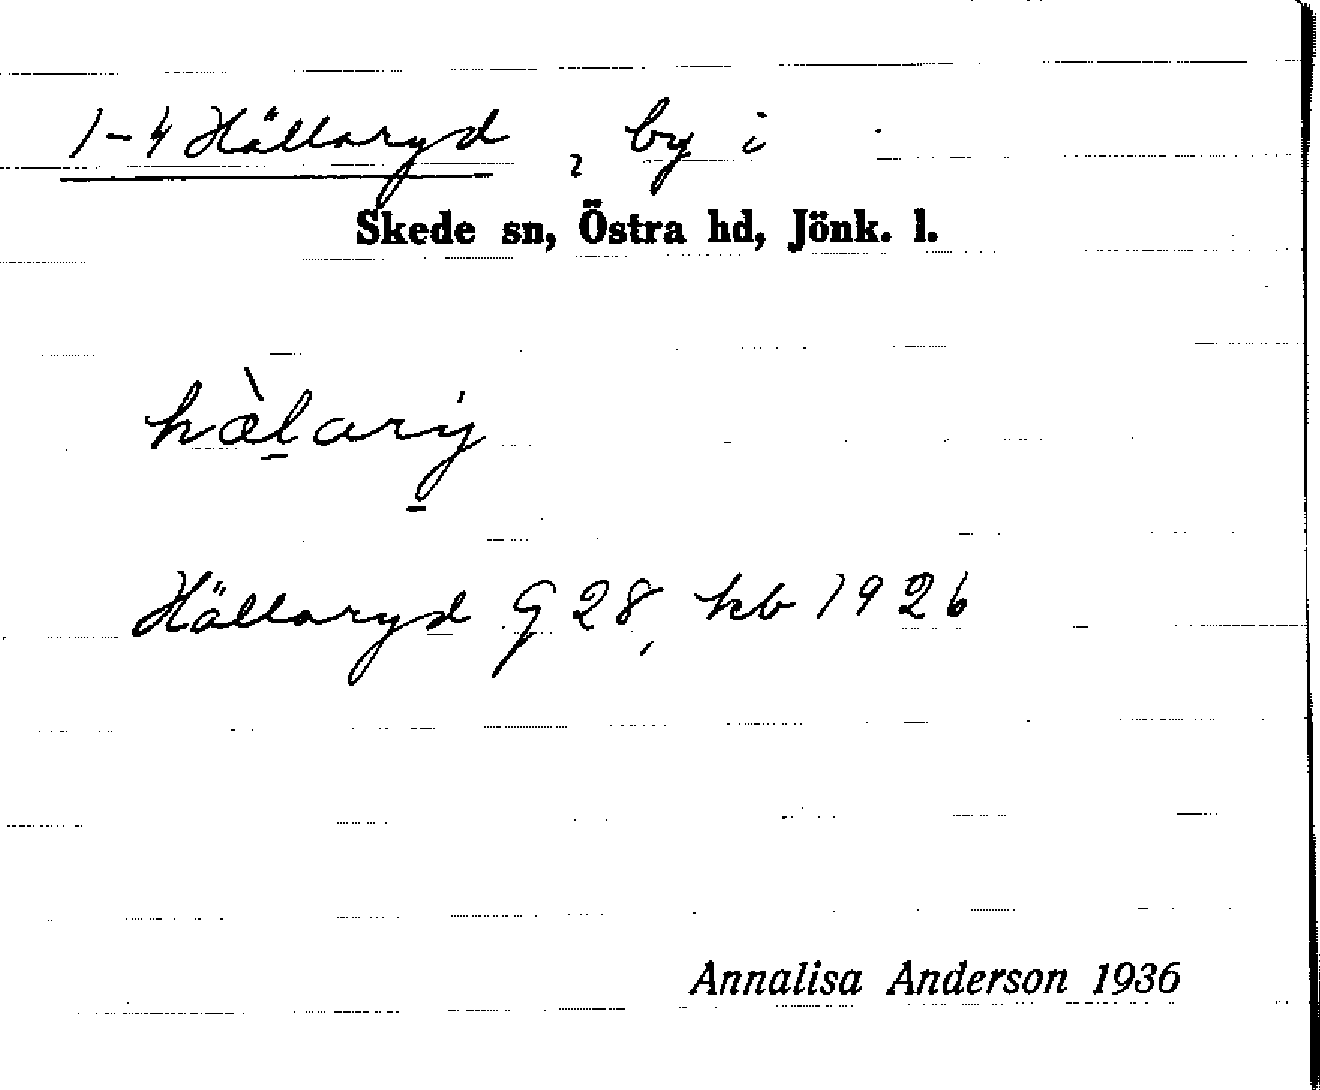 1-4 Hällaryd, by i
Skede sn, Östra hd, Jönk. l.
hæ̀larý
Hällaryd G 28, kb 1926
Annalisa Anderson 1936